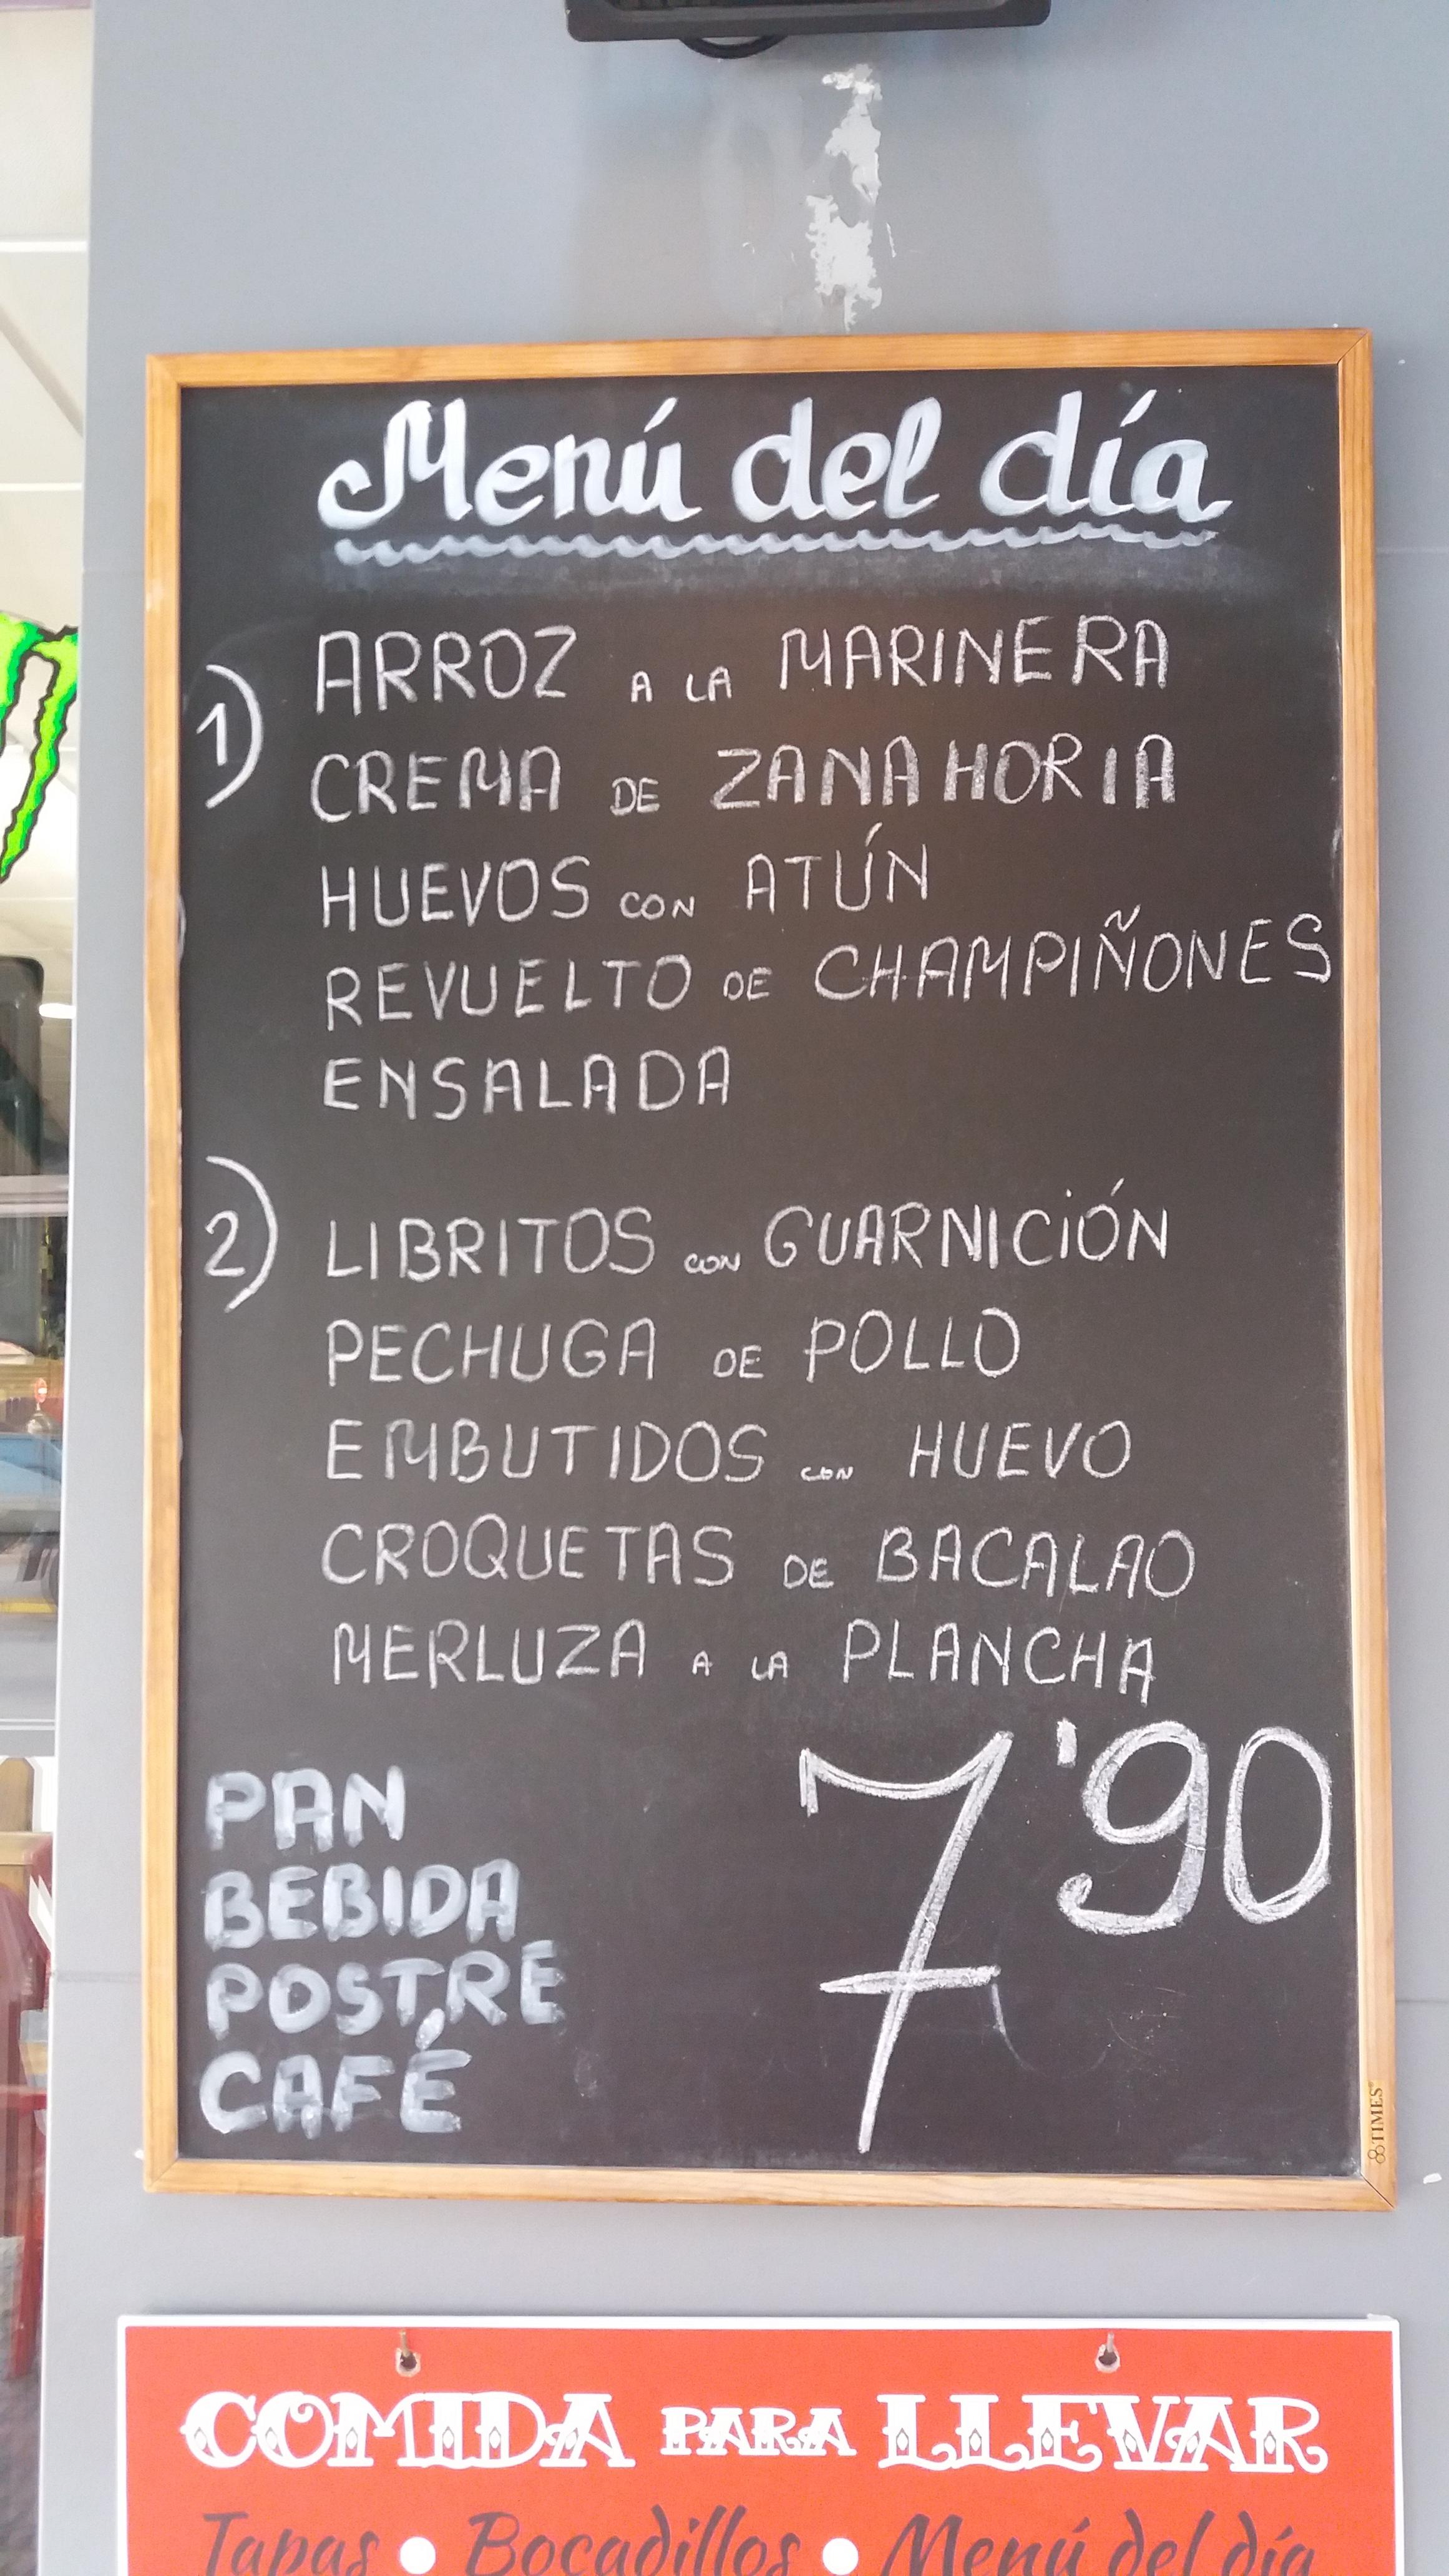 Menú del día
1) ARROZ A LA MARINERA
CREMA DE ZANAHORIA
HUEVOS CON ATÚN
REVUELTO DE CHAMPIÑONES
ENSALADA
2) LIBRITOS CON GUARNICIÓN
PECHUGA DE POLLO
EMBUTIDOS CON HUEVO
CROQUETAS DE BACALAO
MERLUZA A LA PLANCHA
PAN
BEBIDA
POSTRE
CAFÉ
7'90
TIMES
COMIDA PARA LLEVAR
Tapas • Bocadillos • Menú del día